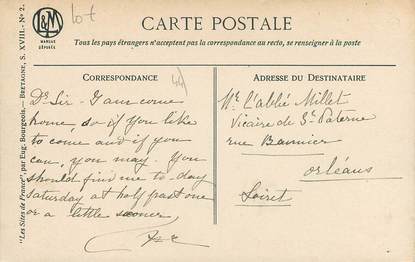 L&M
MARQUE
DÉPOSÉE
lot
44
CARTE POSTALE
Tous les pays étrangers n'acceptent pas la correspondance au recto, se renseigner à la poste
CORRESPONDANCE
Dr Sir - I am come
home, do if you like
to come and if you
can, you may. You
should find me to-day
saturday at half past one
or a little sooner
ADRESSE DU DESTINATAIRE
Mr. l'abbé Millet
Vicaire de St Paterne
rue Bannier
orléans
Loiret
"Les Sites de France", par Eug. Bourgeois. — BRETAGNE, S. XVIII. - N° 2.